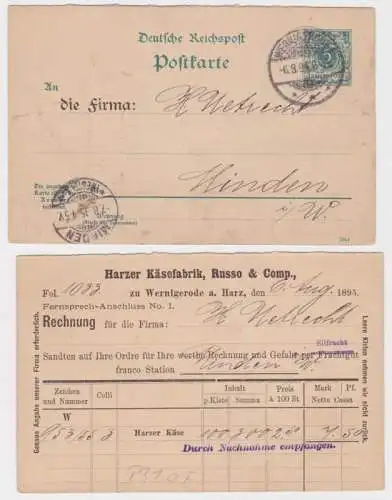 Deutsche Reichspost
Postkarte
An
die Firma: H Uetrecht
Minden
i/W.
MINDEN
Harzer Käsefabrik, Russo & Comp.,
Fol. 1083 zu Wernigerode a. Harz, den 6 Aug. 1895.
Fernsprech-Anschluss No. 1.
Rechnung für die Firma: H Uetrecht
Eilfracht
Sandten auf Ihre Ordre für Ihre werthe Rechnung und Gefahr per Frachtgut
franco Station Minden i/W.
Genaue Angabe unserer Firma erforderlich.
Leere Kisten nehmen wir nicht zurück.
Zeichen und Nummer Colli Inhalt p. Kiste Summa Preis à 100 St Mark Pf. Netto Casst
W
953/55 3 Harzer Käse 100 300 2.50 7 50
Durch Nachnahme empfangen.